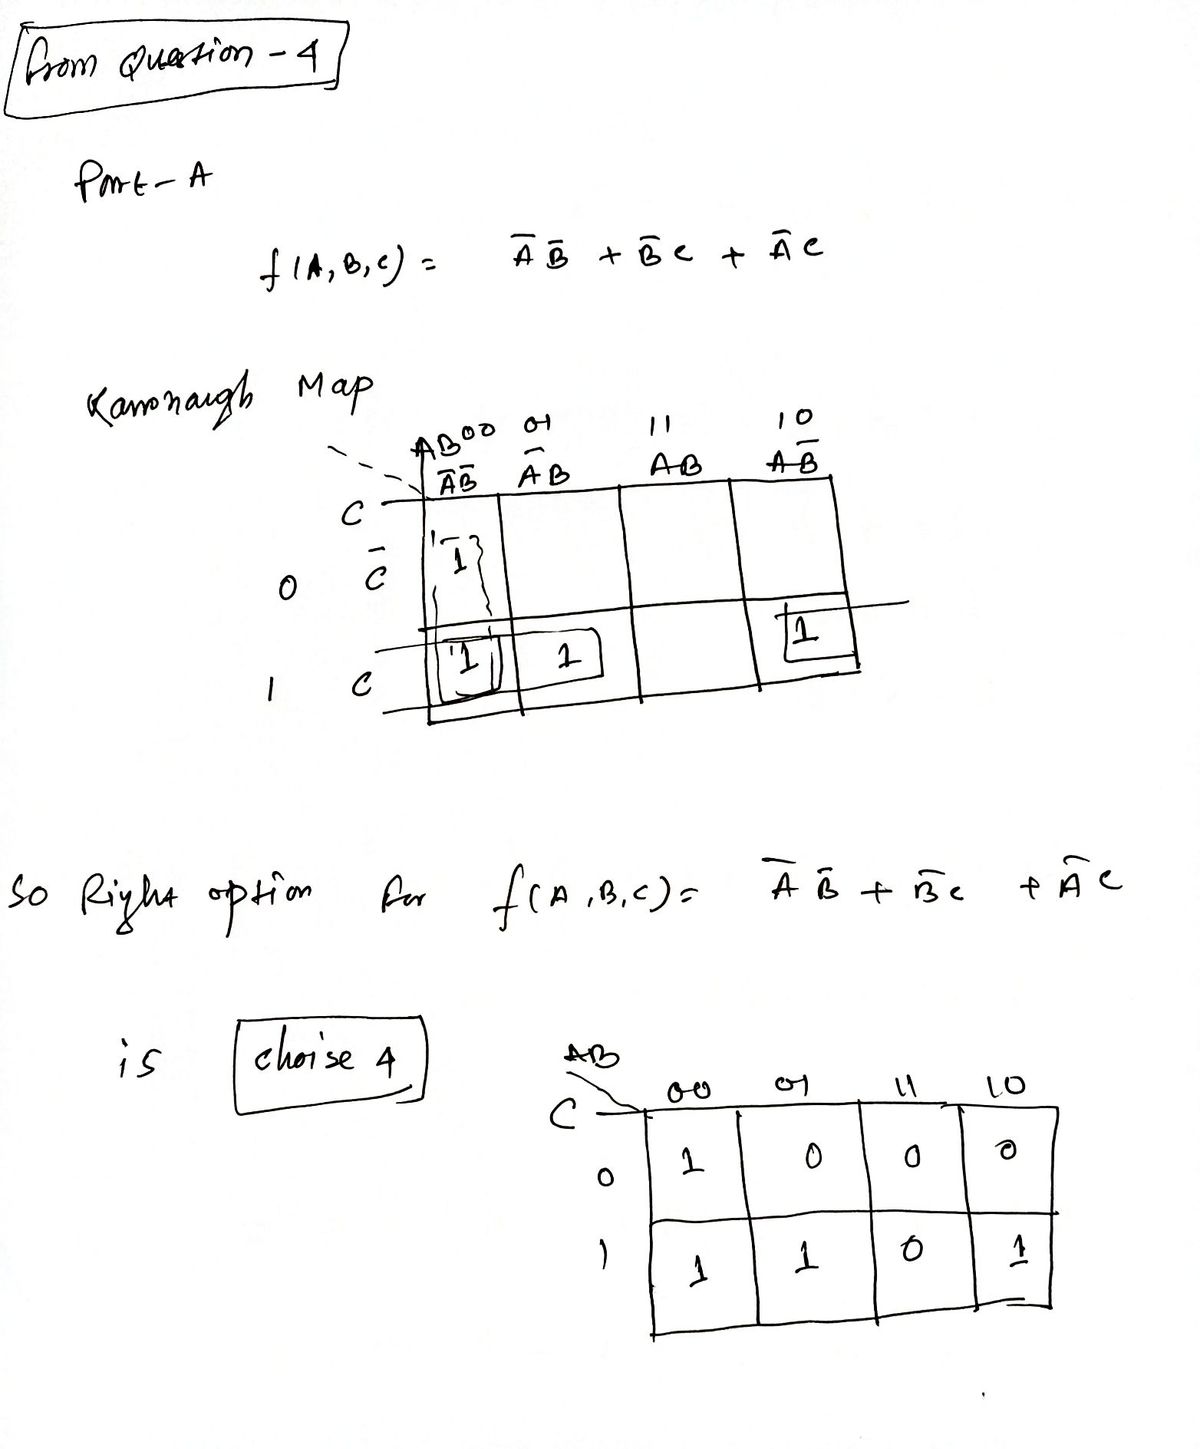 from Question - 4
Part - A
f(A, B, C) = A̅ B̅ + B̅ C + A̅ C
Map
00 01 11 10
AB
A̅B̅ A̅B AB AB̅
C
0 C̅ 1
1 C 1 1 1
So Right option for f(A, B, C) = A̅ B̅ + B̅ C + A̅ C
is choise 4
AB
00 01 11 10
C
0 1 0 0 0
1 1 1 0 1